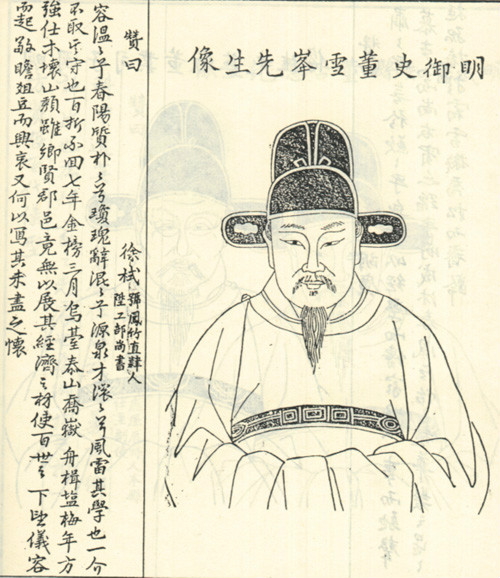 明御史董雪峯先生像
贊曰
徐栻號鳳竹直隸人
陞工部尚書
容溫〻乎春陽質朴〻兮瓊瑰辭混〻乎源泉才〻兮風雷其學也一介
不取其守也百折不回七年金榜三月烏臺泰山喬嶽舟楫塩梅年方
強仕木壞山頹雖鄉賢郡邑竟無以展其經濟之材使百世之下望儀容
而起敬瞻俎豆而興哀又何以寫其未盡之懷